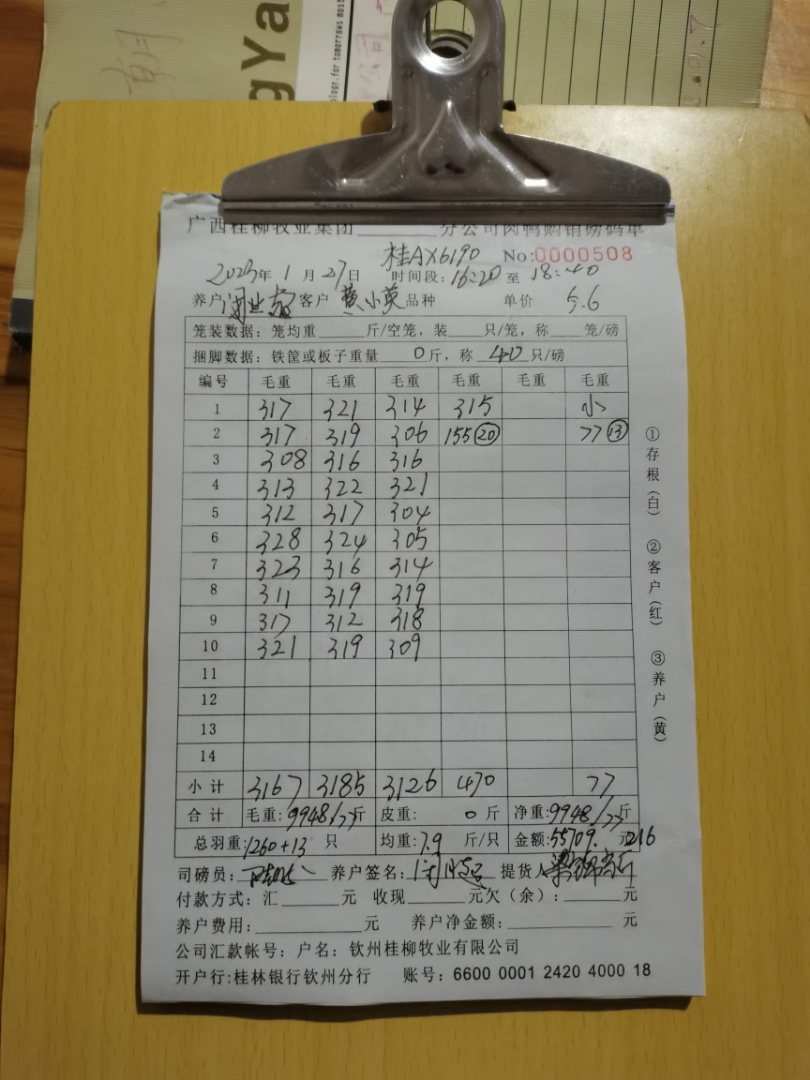 gYa
ology.for tomorrows most
广西桂柳牧业集团 分公司肉鸭购销磅码单
桂AX6190 No:0000508
2023年 1 月 27 日 时间段: 16:20 至 18:40
养户 客户 黄小英 品种 单价 5.6
笼装数据: 笼均重 斤/空笼, 装 只/笼, 称 笼/磅
捆脚数据: 铁筐或板子重量 0 斤, 称 40 只/磅
编号 毛重 毛重 毛重 毛重 毛重 毛重
1 317 321 314 315 小
2 317 319 306 155⑳ 77⑬
3 308 316 316
4 313 322 321
5 312 317 304
6 328 324 305
7 323 316 314
8 311 319 319
9 317 312 318
10 321 319 309
11
12
13
14
小计 3167 3185 3126 470 77
合计 毛重: 9948/77 斤 皮重: 0 斤 净重: 9948/77 斤
总羽重: 1260+13 只 均重: 7.9 斤/只 金额: 55709. 元 216
司磅员: 养户签名: 提货人
付款方式: 汇 元 收现 元欠(余): 元
养户费用: 元 养户净金额: 元
公司汇款帐号: 户名: 钦州桂柳牧业有限公司
开户行:桂林银行钦州分行 账号: 6600 0001 2420 4000 18
①存根(白) ②客户(红) ③养户(黄)